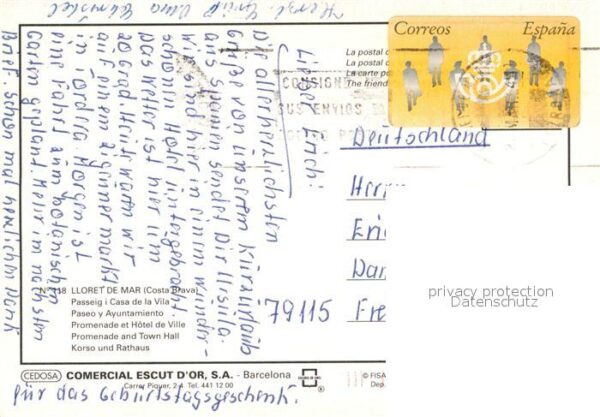 Herzl. Grüße
Correos España
La postal d
La postal d
La carte po
The friend
CONSIGNE
SUS ENVIOS
Lieber Erich!
Die allerherzlichsten
Grüße von unserem Kurzurlaub
aus Spanien sendet Dir Ursula.
Wir sind hier in einem wunder-
schönen Hotel untergebracht.
Das Wetter ist hier um
20 Grad Heute waren wir
auf einem Zigeunermarkt
in Tordera. Morgen ist
eine Fahrt zum botanischen
Garten geplant. Mehr im nächsten
Brief. Schon mal herzlichen Dank
für das Geburtstagsgeschenk.
Deutschland
Herr
Eri
Dan
79115 Fre
privacy protection
Datenschutz
Nº 118 LLORET DE MAR (Costa Brava)
Passeig i Casa de la Vila
Paseo y Ayuntamiento
Promenade et Hôtel de Ville
Promenade and Town Hall
Korso und Rathaus
CEDOSA COMERCIAL ESCUT D'OR, S.A. - Barcelona
Carrer Piquer, 2-4 Tel. 441 12 00
© FISA
Dep.